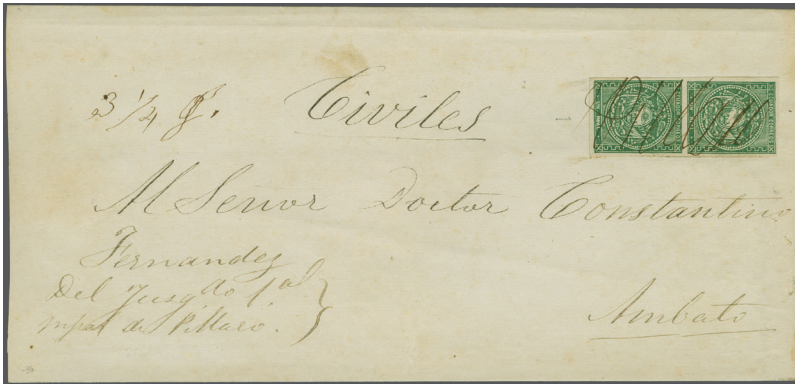 3 1/4 Civiles
Al Senor Doctor Constantino
Fernandez
Del Jusgdo 1.al
de Pillaro.
Ambato